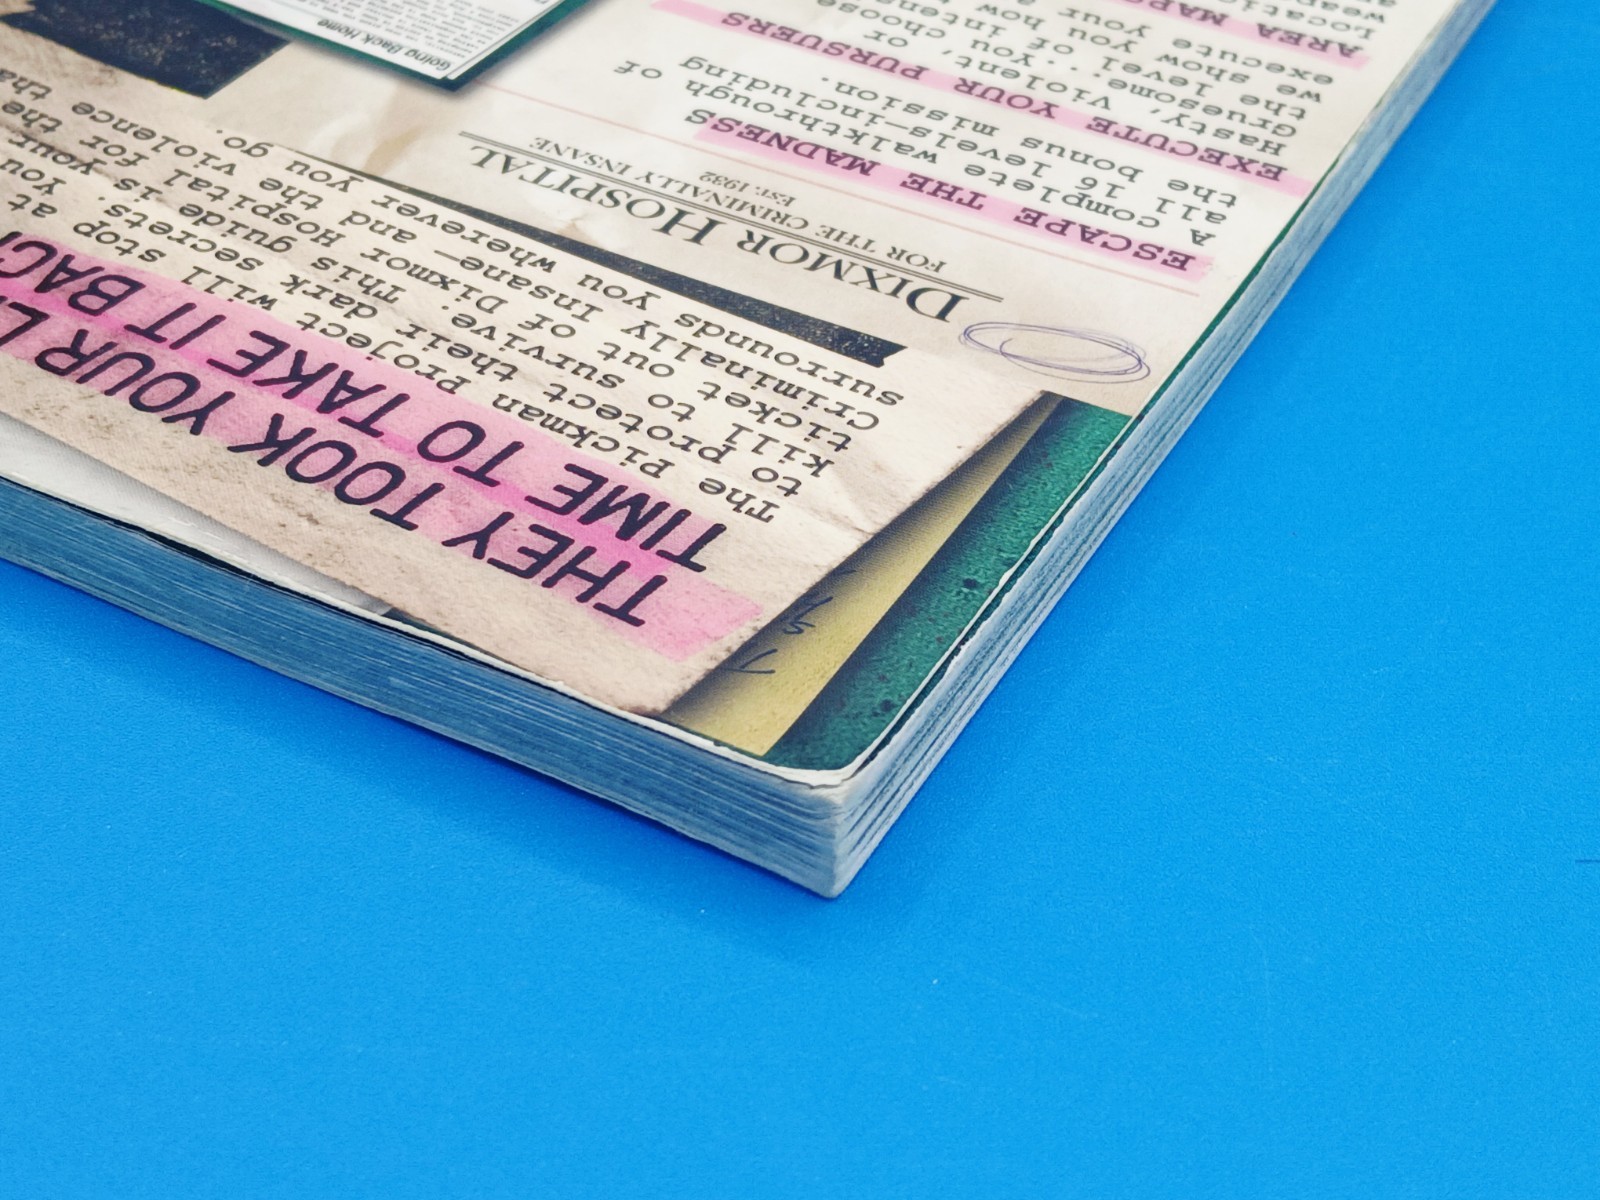 THEY TOOK YOUR L
TIME TO TAKE IT BAC
The Pickman Project will stop at
to protect their dark secrets. You
kill to survive. This guide is your
ticket out of Dixmor Hospital for the
criminally insane—and the violence tha
surrounds you wherever you go.
DIXMOR HOSPITAL
FOR THE CRIMINALLY INSANE
EST. 1932
ESCAPE THE MADNESS
A complete walkthrough of
all 16 levels—including
the bonus mission.
EXECUTE YOUR PURSUERS
Hasty, violent, or
Gruesome...you choose
the level of intens
we show you how
execute your
AREA MAPS
Locatio
Going Back Home